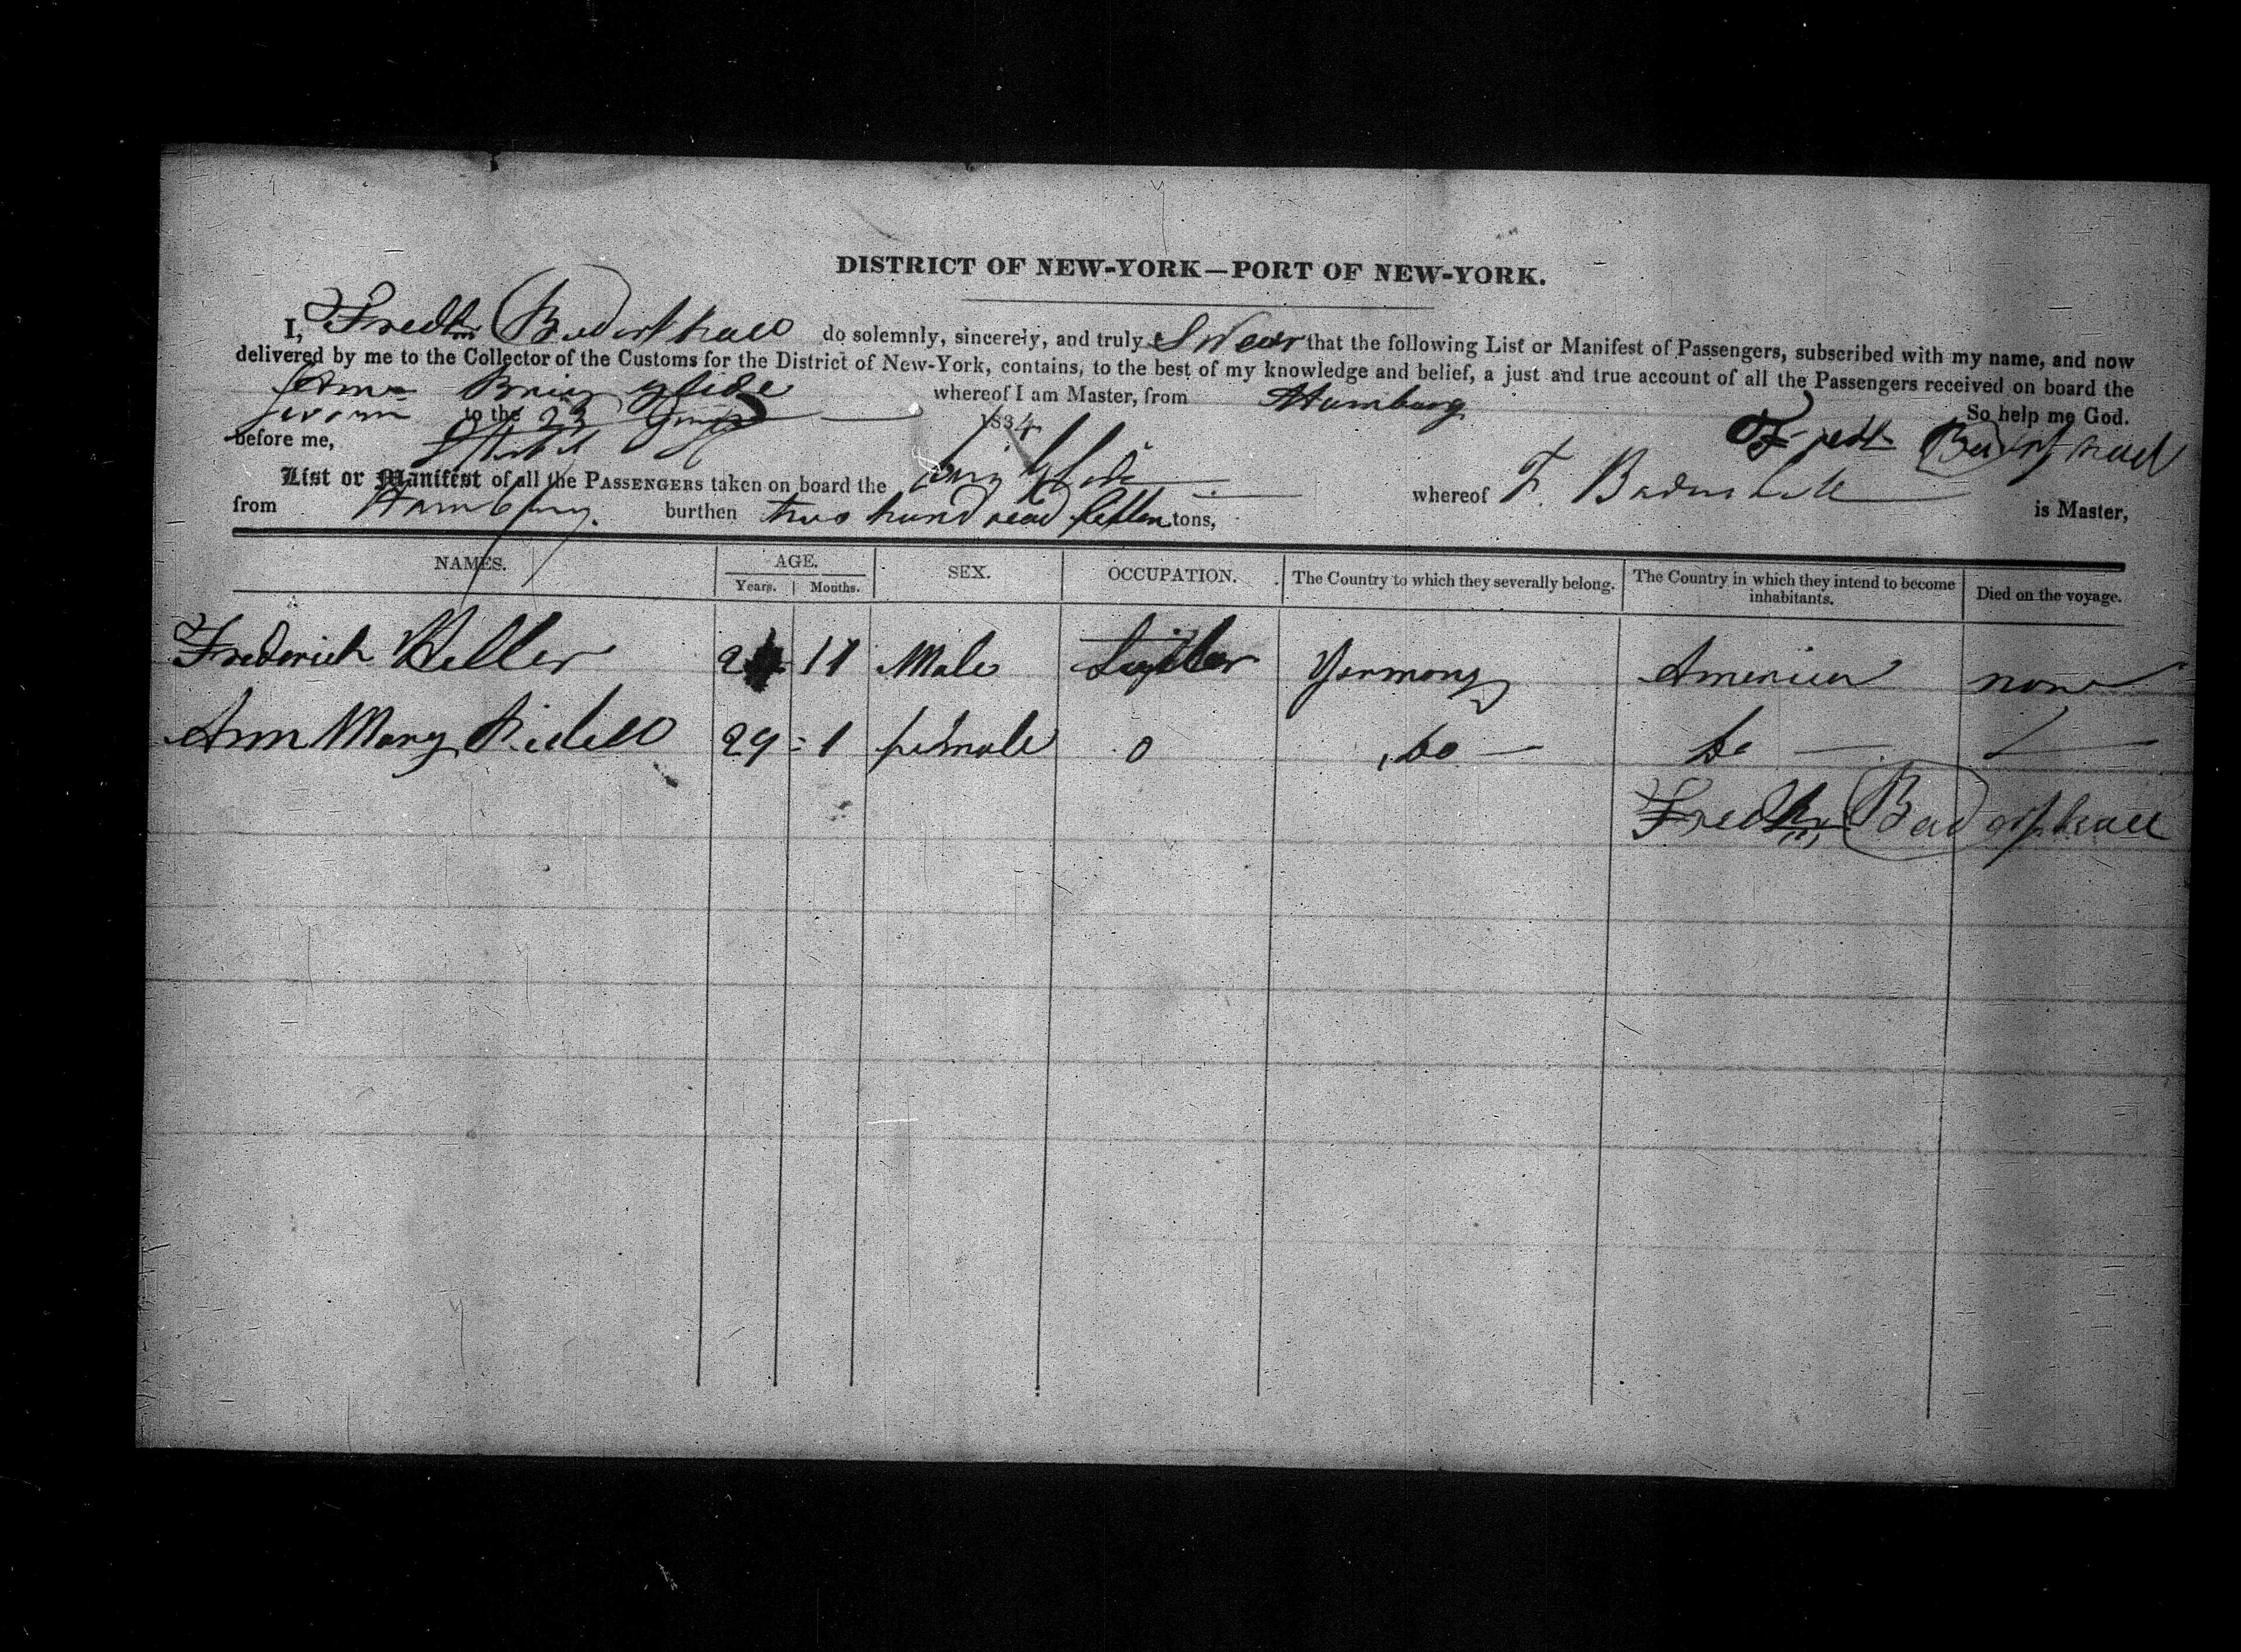 DISTRICT OF NEW-YORK—PORT OF NEW-YORK.
I, do solemnly, sincerely, and truly Swear that the following List or Manifest of Passengers, subscribed with my name, and now
delivered by me to the Collector of the Customs for the District of New-York, contains, to the best of my knowledge and belief, a just and true account of all the Passengers received on board the
whereof I am Master, from Hamburg
to the 23 1834 So help me God.
before me,
List or Manifest of all the PASSENGERS taken on board the whereof F. is Master,
from Hamburg burthen two hundread tons,
NAMES. AGE. SEX. OCCUPATION. The Country to which they severally belong. The Country in which they intend to become inhabitants. Died on the voyage.
Years. Months.
Frederick Heller 11 Male Yermony America none
Ann Mary 29 - 1 female 0 do — do —